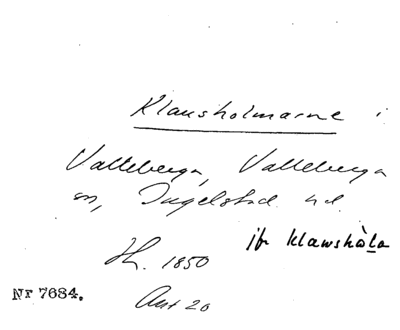 Klausholmarne i
Valleberga, Valleberga
sn, Ingelstad hd.
jfr klawshåla
Hl. 1850
Nr 7684.
Avt 20